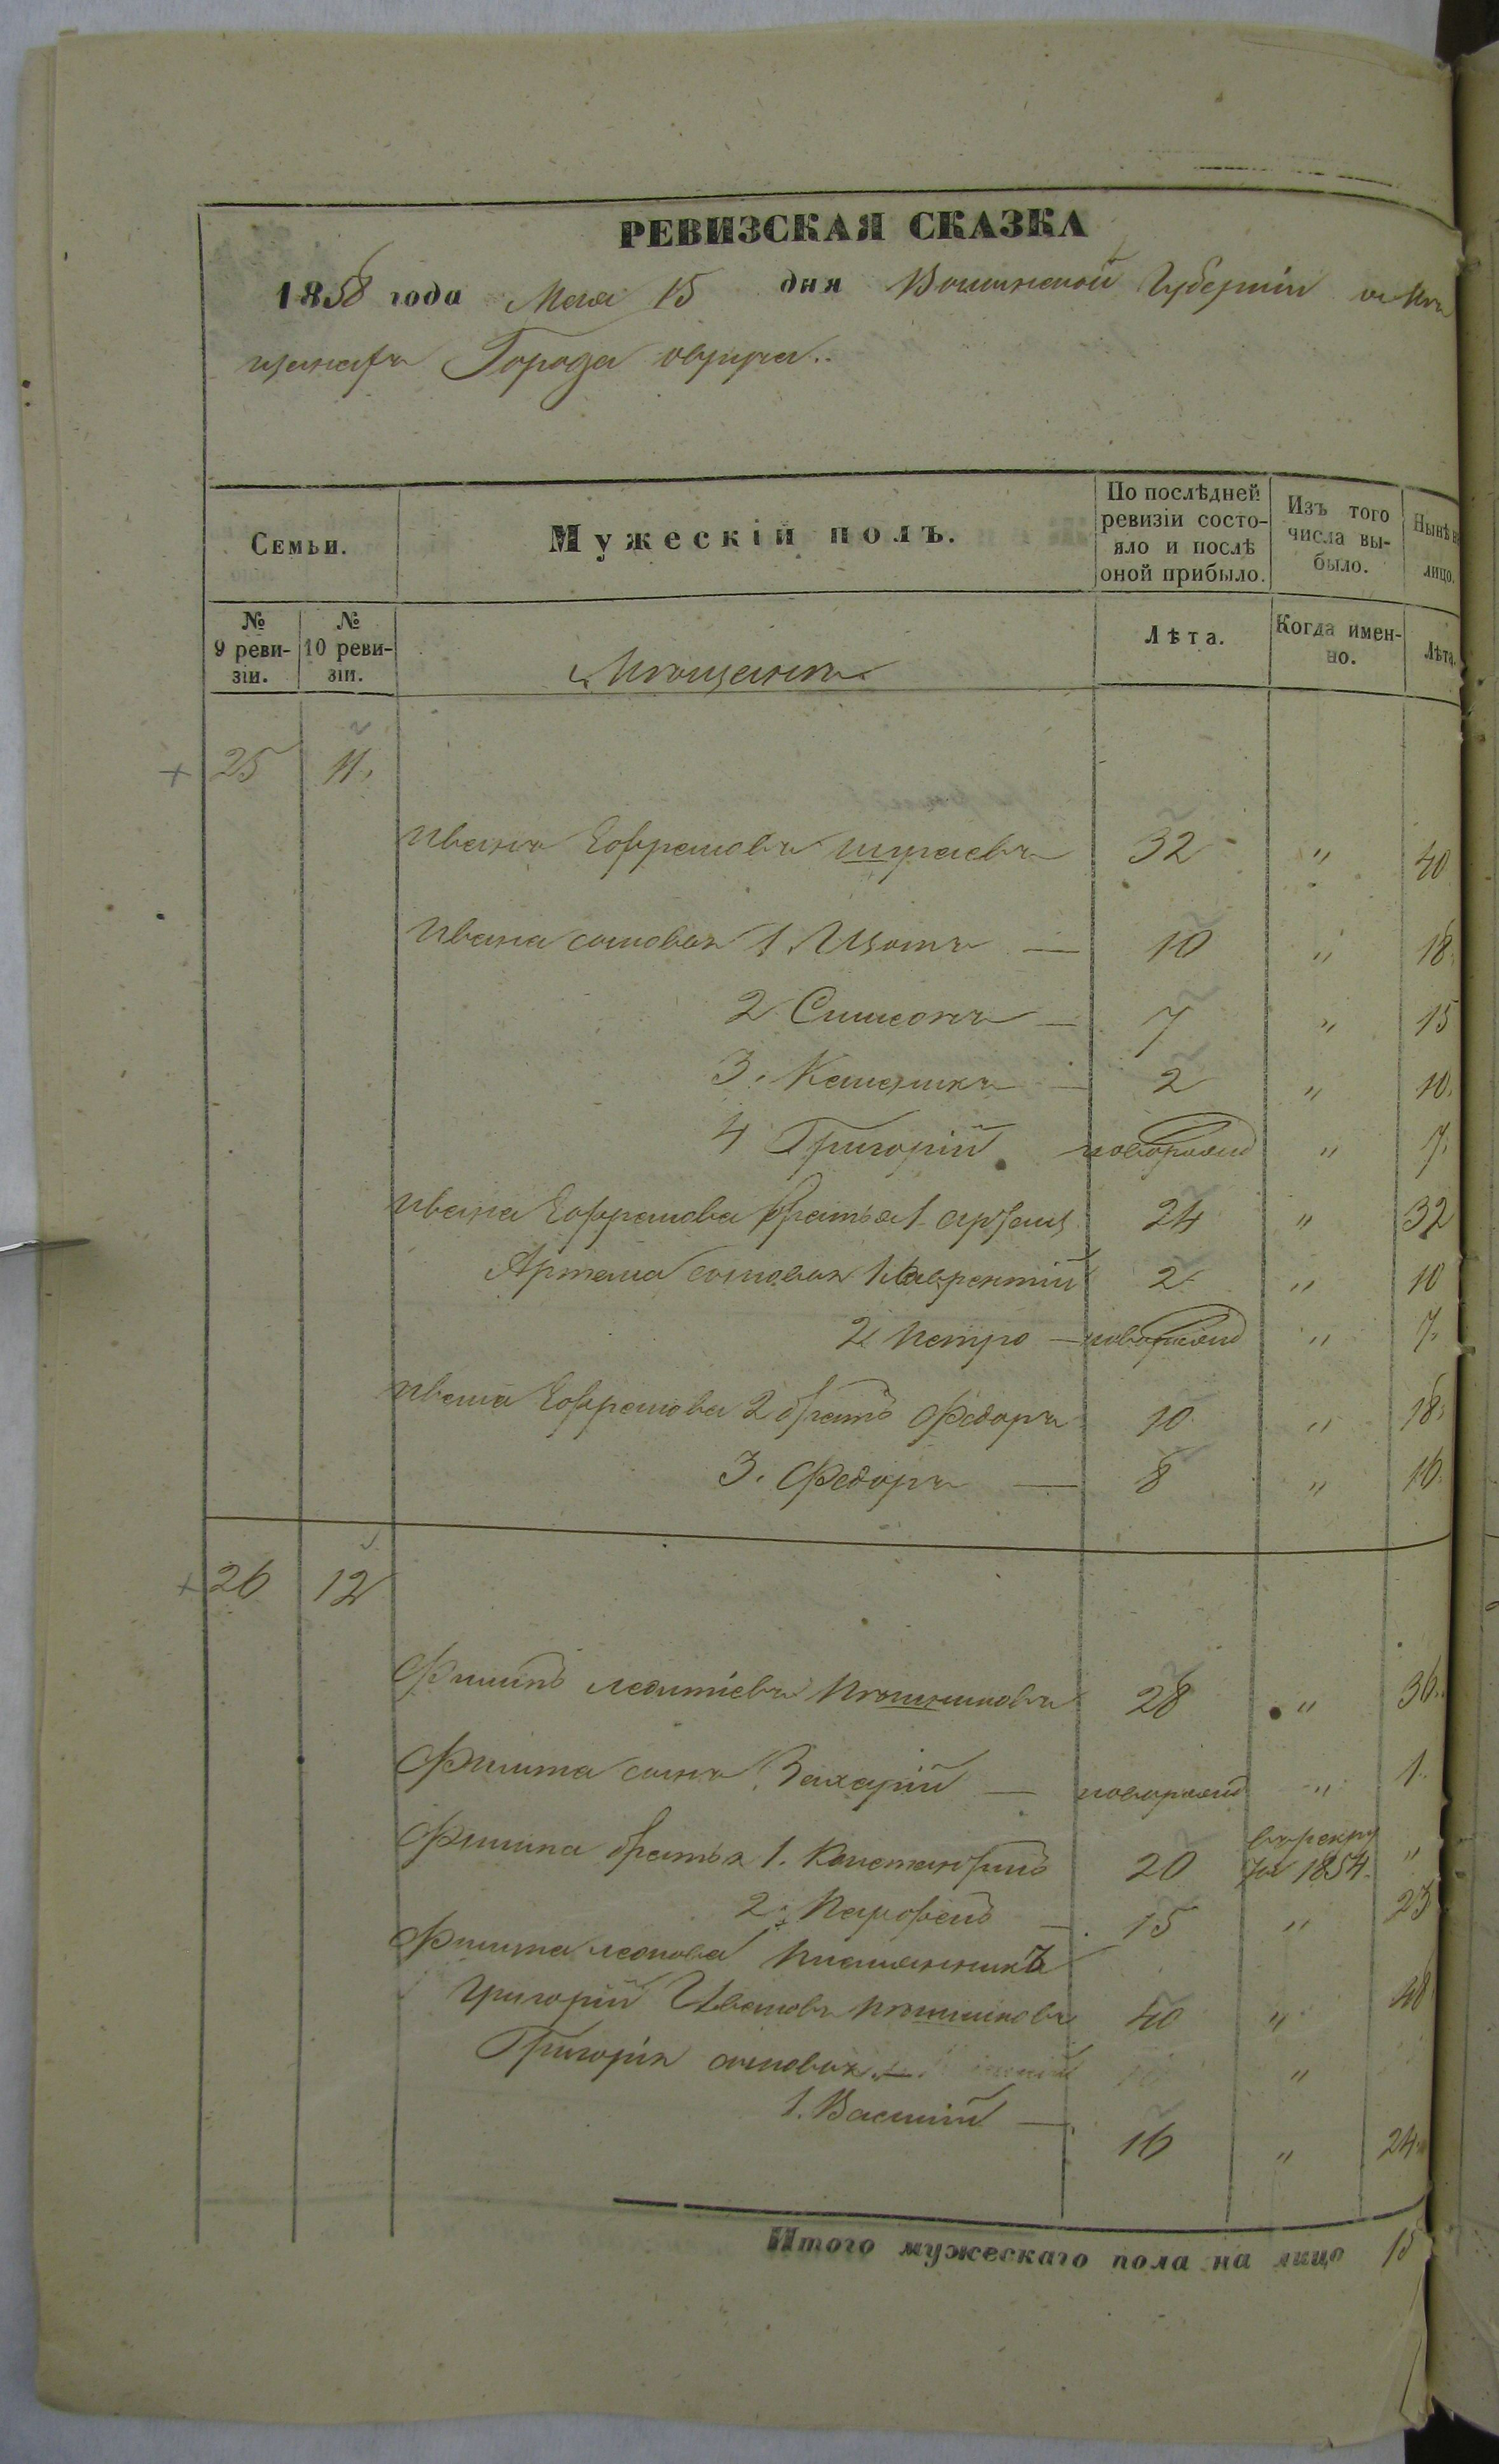 РЕВИЗСКАЯ СКАЗКА
1858 года Мая 15 дня Волынской Губернiи о Мѣ
щанахъ Города овруча..
Семьи.
Мужескiй полъ.
По послѣдней ревизiи состо-
яло и послѣ оной прибыло.
Изъ того числа вы-
было.
Нынѣ на лицо.
№ 9 реви-
зiи.
№ 10 реви-
зiи.
Мѣщанъ
Лѣта.
Когда имен-
но.
Лѣта.
25 11.
Иванъ Ефремовъ 32 " 40
Ивана сыновья 1 Изотъ — 10 " 18.
2 Симеонъ — 7 " 15
3. — 2 " 10.
4 Григорiй новорожд " 7.
Ивана Ефремова братья 1 24 " 32
Артема сыновья 1 Лаврентiй 2 " 10
2 Петро — новорожд " 7.
Ивана Ефремова 2 братъ Федоръ 10 " 18.
3. Федоръ — 8 " 16.
26 12
Филипъ 28 " 36.
Филипа сынъ Захарiй — новорожд " 1.
Филипа братья 1. Константинъ 20 въ рекру
ты 1854. "
2. Парфенъ — 15 " 23
Филипа племянникъ
Григорiй Ивановъ 40 " 48
Григорiя сыновья "
1. Василiй — 16 " 24
Итого мужескаго пола на лицо 15